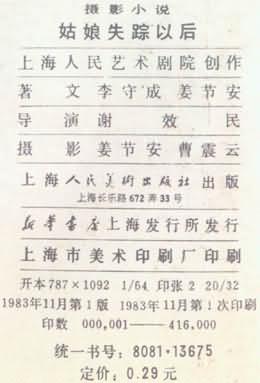 摄影小说
姑娘失踪以后
上海人民艺术剧院创作
著 文 李守成 姜节安
导 演 谢 效 民
摄 影 姜节安 曹震云
上海人民美術出版社 出版
上海长乐路 672 弄 33 号
新华書店上海发行所发行
上海市美术印刷厂印刷
开本 787×1092 1/64 印张 2 20/32
1983年11月第1版 1983年11月第1次印刷
印数 000,001——416,000
统一书号：8081·13675
定价：0.29 元